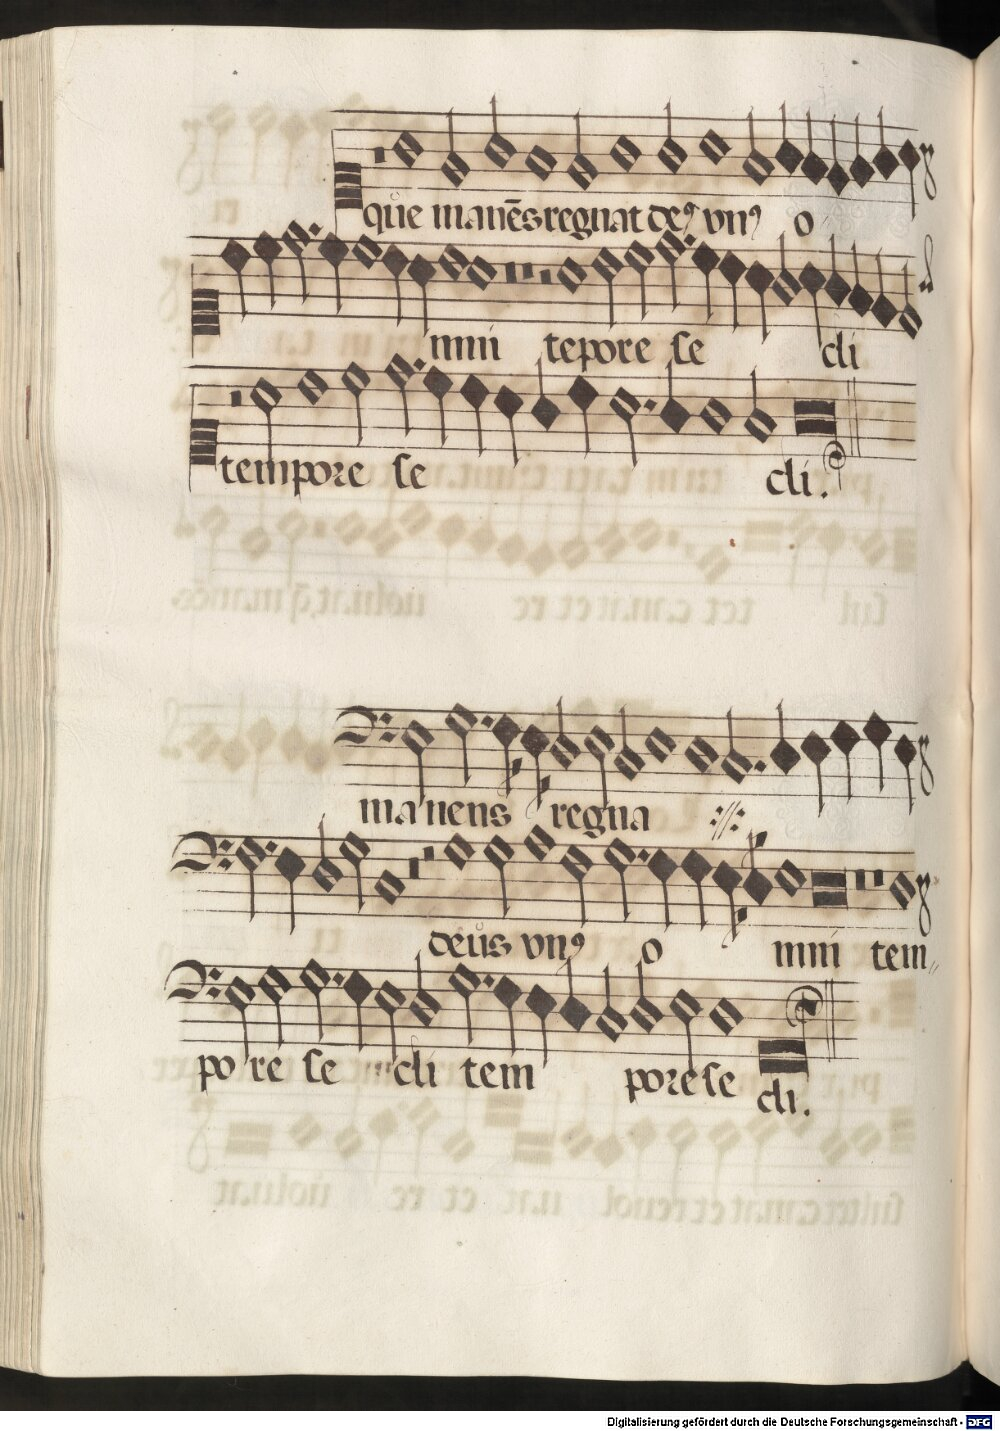 que manēs regnat deꝰ vnꝰ o
mni tepore se cli
tempore se cli.
ma nens regna
deus vnꝰ o mni tem
po re se cli tem pore se cli.
Digitalisierung gefördert durch die Deutsche Forschungsgemeinschaft - DFG